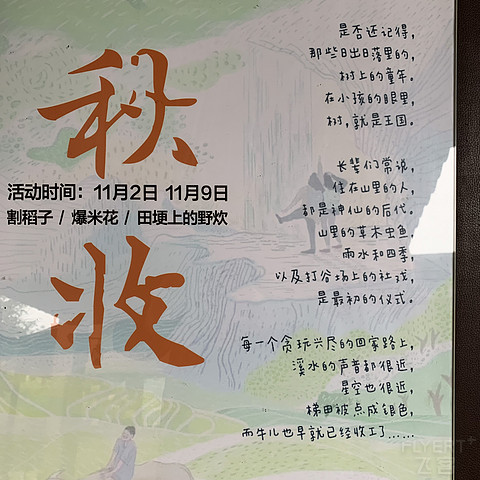 秋
收
活动时间：11月2日 11月9日
割稻子 / 爆米花 / 田埂上的野炊
是否还记得，
那些日出日落里的，
树上的童年。
在小孩的眼里，
树，就是王国。
长辈们常说，
住在山里的人，
都是神仙的后代。
山里的草木虫鱼，
雨水和四季，
以及打谷场上的社戏，
是最初的仪式。
每一个贪玩兴尽的回家路上，
溪水的声音都很近，
星空也很近，
梯田被点成银色，
而牛儿也早就已经收工了……
FLYERT
飞客